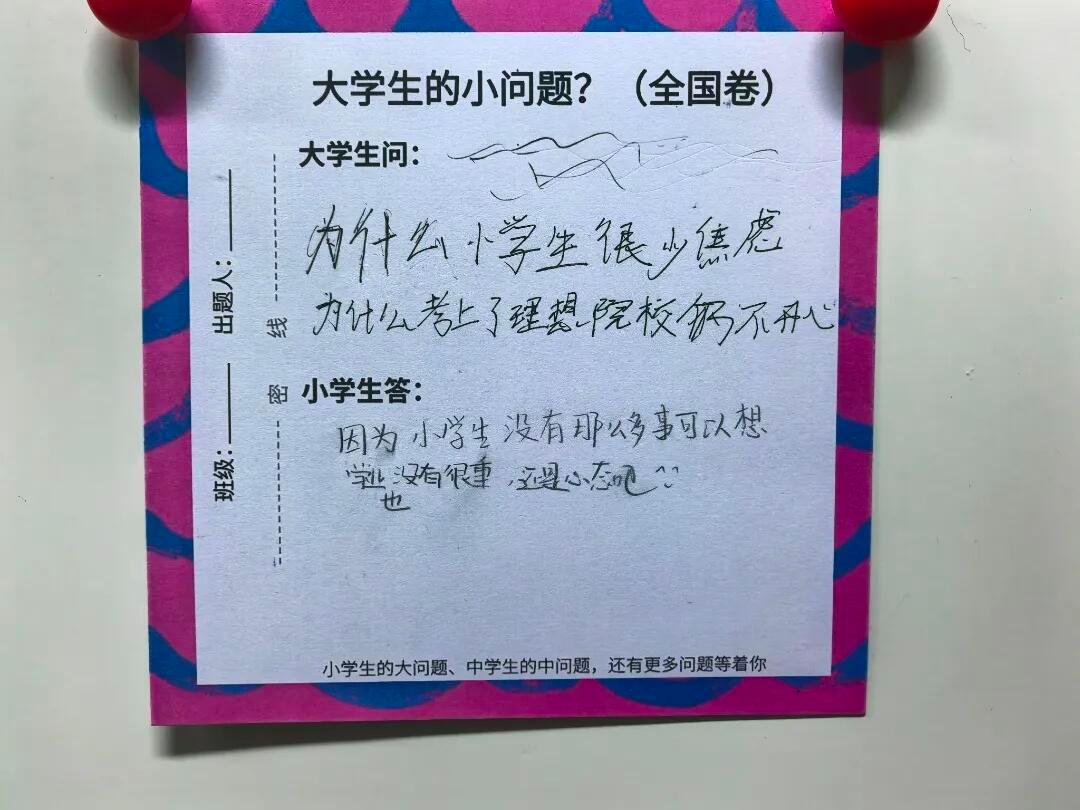 大学生的小问题？（全国卷）
大学生问：
为什么小学生很少焦虑
为什么考上了理想院校仍不开心
小学生答：
因为小学生没有那么多事可以想
学业没有很重，还是心态吧^^
也
班级：
出题人：
密
线
小学生的大问题、中学生的中问题，还有更多问题等着你